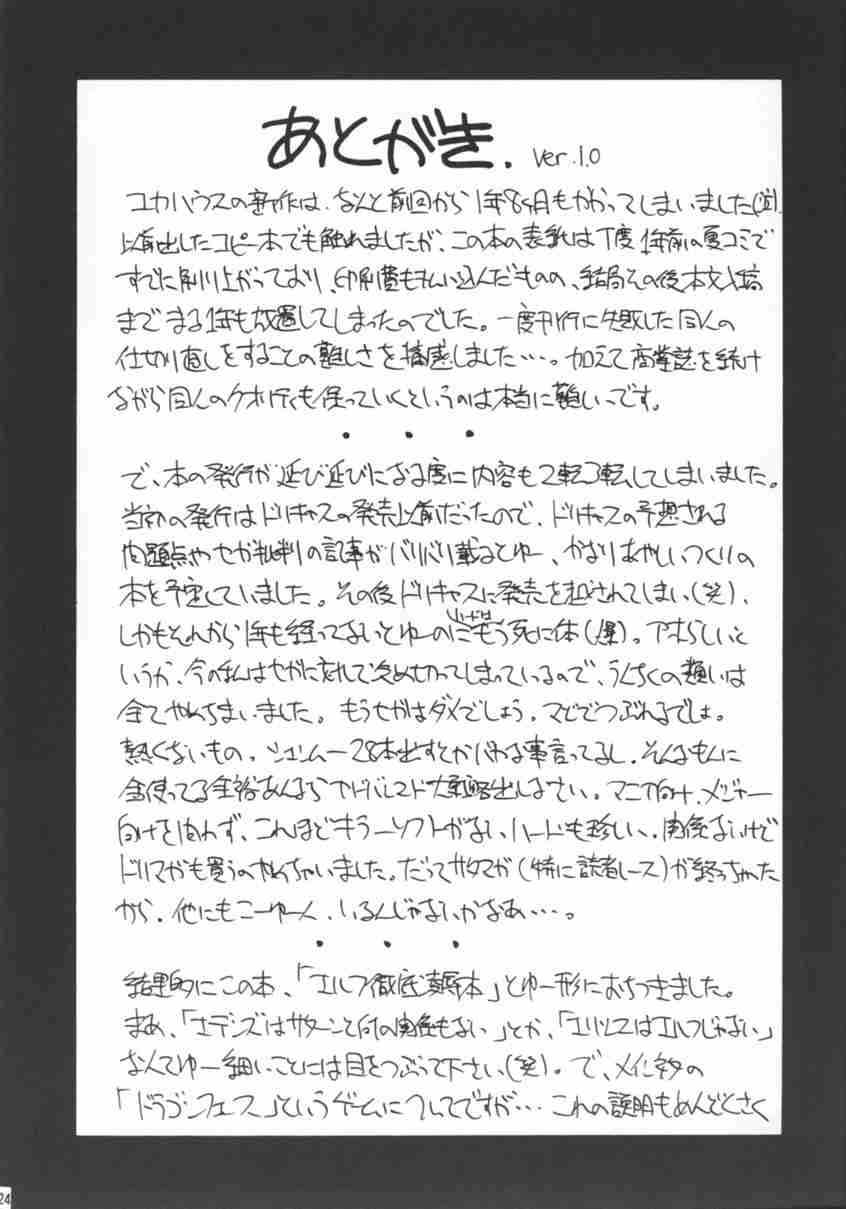 あとがき. ver.1.0
ユカハウスの新作は、なんと前回から1年8ヶ月もかかってしまいました(泣)。
以前出したコピー本でも触れましたが、この本の表紙は丁度1年前の夏コミで
すでに刷り上がっており、印刷費も払い込んだものの、結局その後本文入稿
までまる1年も放置してしまったのでした。一度刊行に失敗した同人の
仕切り直しをすることの難しさを痛感しました…。加えて商業誌を続け
ながら同人のクオリティも保っていくというのは本当に難しいです。
・・・
で、本の発行が延び延びになる度に内容も2転3転してしまいました。
当初の発行はドリキャスの発売以前だったので、ドリキャスの予想される
問題点やセガ批判の記事がバリバリ載るとゆー、かなりあやしいつくりの
本を予定していました。その後ドリキャスに発売を越されてしまい(笑)、
しかもそれから1年も経ってないとゆーのにもう死に体(爆)。アホらしいと
いうか、今の私はセガに対して冷め切ってしまっているので、うんちくの類いは
全てやめちまいました。もうセガはダメでしょう。マジでつぶれるでしょ。
熱くないもの。シェンムー28本出すとかバカな事言ってるし。そんなもんに
金使ってる余裕あんならアドバンスド大戦略出しなさい。マニア向け、メジャー
向けを問わず、これほどキラーソフトがないハードも珍しい。関係ないけど
ドリマガも買うのやめちゃいました。だってサタマガ(特に読者レース)が終っちゃった
から。他にもこーゆー人、いるんじゃないかなあ…。
・・・
結果的にこの本、「エルフ徹底凌辱本」とゆー形におちつきました。
まあ、「エデンズはサターンと何の関係もない」とか、「エリスはエルフじゃない」
なんてゆー細いことには目をつぶって下さい(笑)。で、メインネタの
「ドラゴンフェス」というゲームについてですが…これの説明もめんどくさく
24